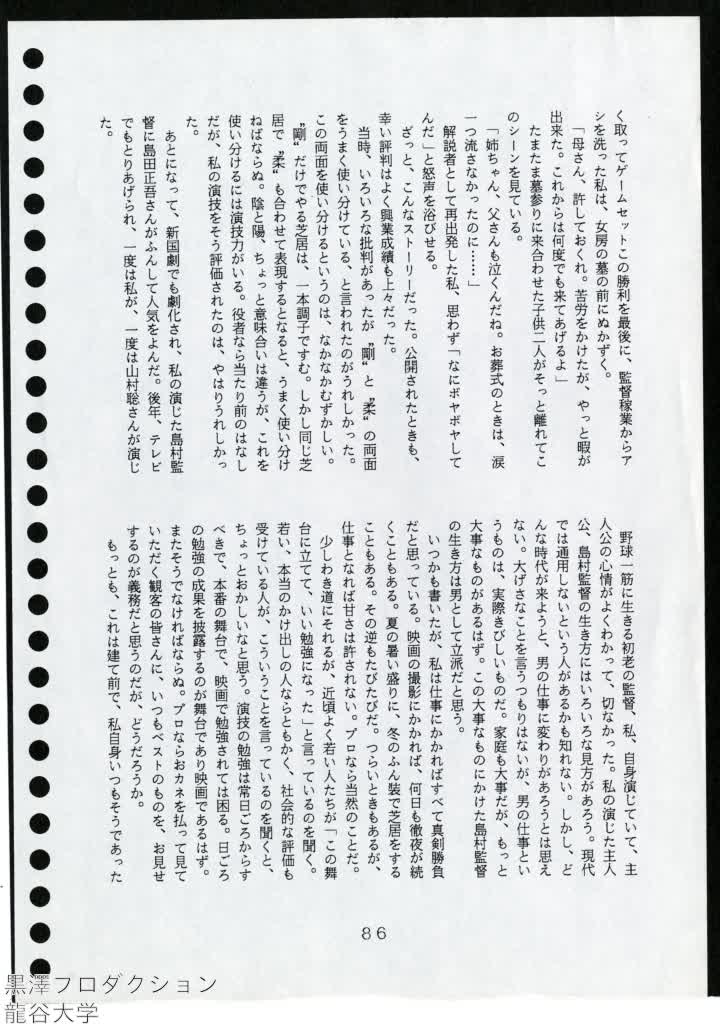 く取ってゲームセットこの勝利を最後に、監督稼業からア
シを洗った私は、女房の墓の前にぬかずく。
「母さん、許しておくれ。苦労をかけたが、やっと暇が
出来た。これからは何度でも来てあげるよ」
たまたま墓参りに来合わせた子供二人がそっと離れてこ
のシーンを見ている。
「姉ちゃん、父さんも泣くんだね。お葬式のときは、涙
一つ流さなかったのに……」
解説者として再出発した私、思わず「なにボヤボヤして
んだ」と怒声を浴びせる。
ざっと、こんなストーリーだった。公開されたときも、
幸い評判はよく興業成績も上々だった。
当時、いろいろな批判があったが〝剛〟と〝柔〟の両面
をうまく使い分けている、と言われたのがうれしかった。
この両面を使い分けるというのは、なかなかむずかしい。
〝剛〟だけでやる芝居は、一本調子ですむ。しかし同じ芝
居で〝柔〟も合わせて表現するとなると、うまく使い分け
ねばならぬ。陰と陽、ちょっと意味合いは違うが、これを
使い分けるには演技力がいる。役者なら当たり前のはなし
だが、私の演技をそう評価されたのは、やはりうれしかっ
た。
あとになって、新国劇でも劇化され、私の演じた島村監
督に島田正吾さんがふんして人気をよんだ。後年、テレビ
でもとりあげられ、一度は私が、一度は山村聡さんが演じ
た。
野球一筋に生きる初老の監督、私、自身演じていて、主
人公の心情がよくわかって、切なかった。私の演じた主人
公、島村監督の生き方にはいろいろな見方があろう。現代
では通用しないという人があるかも知れない。しかし、ど
んな時代が来ようと、男の仕事に変わりがあろうとは思え
ない。大げさなことを言うつもりはないが、男の仕事とい
うものは、実際きびしいものだ。家庭も大事だが、もっと
大事なものがあるはず。この大事なものにかけた島村監督
の生き方は男として立派だと思う。
いつかも書いたが、私は仕事にかかればすべて真剣勝負
だと思っている。映画の撮影にかかれば、何日も徹夜が続
くこともある。夏の暑い盛りに、冬のふん装で芝居をする
こともある。その逆もたびたびだ。つらいときもあるが、
仕事となれば甘さは許されない。プロなら当然のことだ。
少しわき道にそれるが、近頃よく若い人たちが「この舞
台に立てて、いい勉強になった」と言っているのを聞く。
若い、本当のかけ出しの人ならともかく、社会的な評価も
受けている人が、こういうことを言っているのを聞くと、
ちょっとおかしいなと思う。演技の勉強は常日ごろからす
べきで、本番の舞台で、映画で勉強されては困る。日ごろ
の勉強の成果を披露するのが舞台であり映画であるはず。
またそうでなければならぬ。プロならおカネを払って見て
いただく観客の皆さんに、いつもベストのものを、お見せ
するのが義務だと思うのだが、どうだろうか。
もっとも、これは建て前で、私自身いつもそうであった
86
黒澤プロダクション
龍谷大学